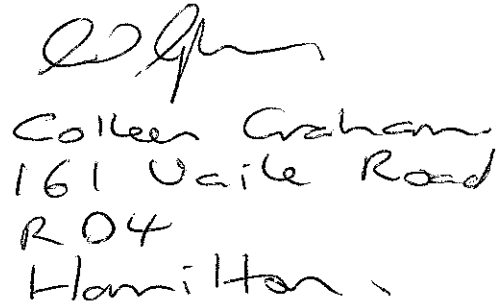 Colleen Graham.
161 Vaile Road
RD4
Hamilton.